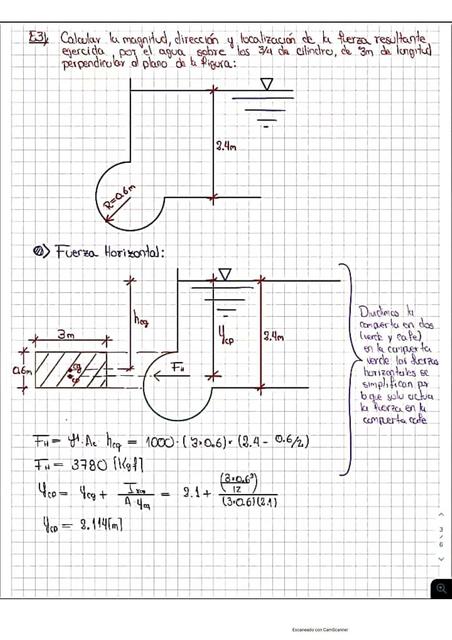 E3) Calcular la magnitud, dirección y localización de la fuerza resultante
ejercida, por el agua sobre los 3/4 de cilindro, de 3m de longitud
perpendicular al plano de la figura:
2.4m
R=0.6m
a) Fuerza Horizontal:
3m
hcg
Ycp
2.4m
0.6m
cg
cp
FH
Dividimos la
compuerta en dos
(verde y cafe)
en la compuerta
verde las fuerzas
horizontales se
simplifican por
lo que solo actua
la fuerza en la
compuerta cafe
FH = γ · Ac hcg = 1000 · (3*0.6) * (2.4 - 0.6/2)
FH = 3780 [Kgf]
Ycp = Ycg + Ixcg / A · ym = 2.1 + (3*0.6³ / 12) / (3*0.6)(2.1)
Ycp = 2.114[m]
3
/
6
Escaneado con CamScanner